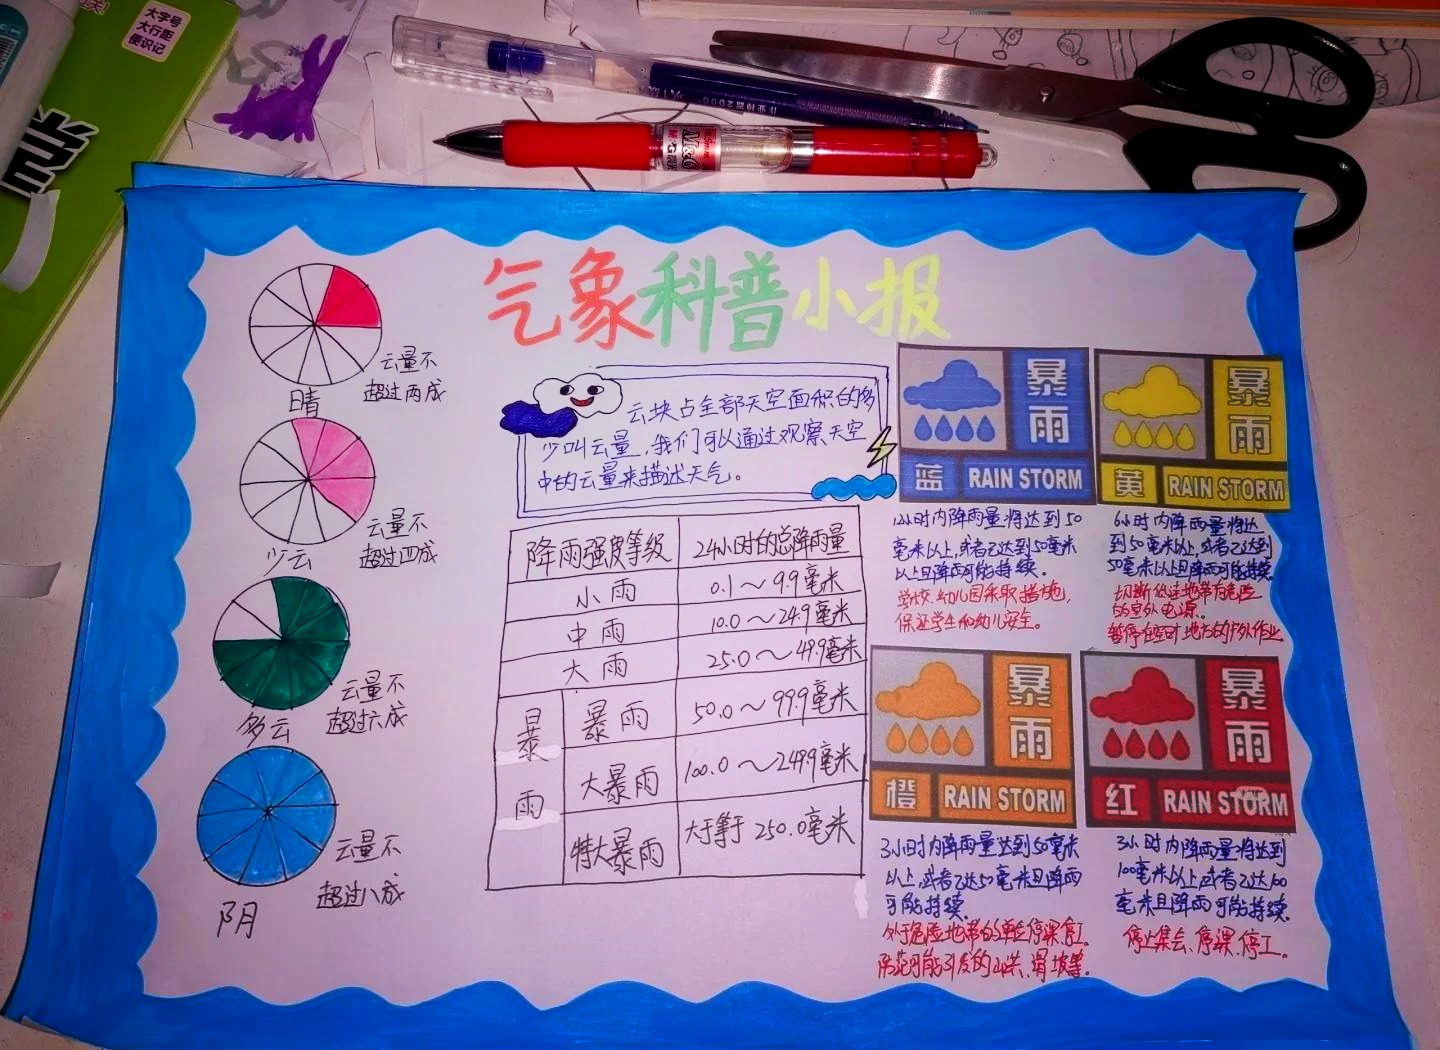 大字号
大行距
便识记
气象科普小报
云块占全部天空面积的多
少叫云量，我们可以通过观察天空
中的云量来描述天气。
云量不
超过两成
晴
云量不
超过四成
少云
云量不
超过六成
多云
云量不
超过八成
阴
降雨强度等级 24小时的总降雨量
小雨 0.1～9.9毫米
中雨 10.0～24.9毫米
大雨 25.0～49.9毫米
暴雨 暴雨 50.0～99.9毫米
大暴雨 100.0～249.9毫米
特大暴雨 大于等于250.0毫米
暴雨
蓝 RAIN STORM
12小时内降雨量将达到50
毫米以上,或者已达到50毫米
以上且降雨可能持续.
学校、幼儿园采取措施,
保证学生和幼儿安全。
暴雨
黄 RAIN STORM
6小时内降雨量将达
到50毫米以上,或者已达到
50毫米以上且降雨可能持续
切断低洼地带有危险
的室外电源.
暂停在空旷地方的户外作业
暴雨
橙 RAIN STORM
3小时内降雨量达到50毫米
以上,或者已达50毫米且降雨
可能持续.
处于危险地带的单位停课、停工
防范可能引发的山洪、滑坡等.
暴雨
红 RAIN STORM
3小时内降雨量将达到
100毫米以上,或者已达100
毫米且降雨可能持续.
停止集会、停课、停工。